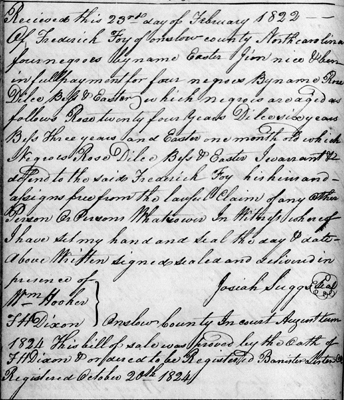 Received this 23rd day of February 1822 —
Of Frederick Foy of Onslow county North carolina
four negroes by name Easter
in full payment for four negroes By name Rose
Dilce Bess & Easter, which negroes are aged as
follows Rose twenty four years Dilce six years
Bess Three years and Easter one month & which
Negroes Rose Dilce Bess & Easter I warrant &
defend to the said Fredrick Foy his heirs and
assigns free from the lawful Claim of any other
Person or Persons Whatsoever In Witness whereof
I have set my hand and Seal the day & date
Above Written signed sealed and delivered in
presence of
Josiah Suggs Seal
Wm Hooker
F H Dixon
Onslow County In court August term
1824 This bill of sale was proved by the Oath of
F H Dixon & ordered to be Registered Banister Lester
Registered October 20th 1824